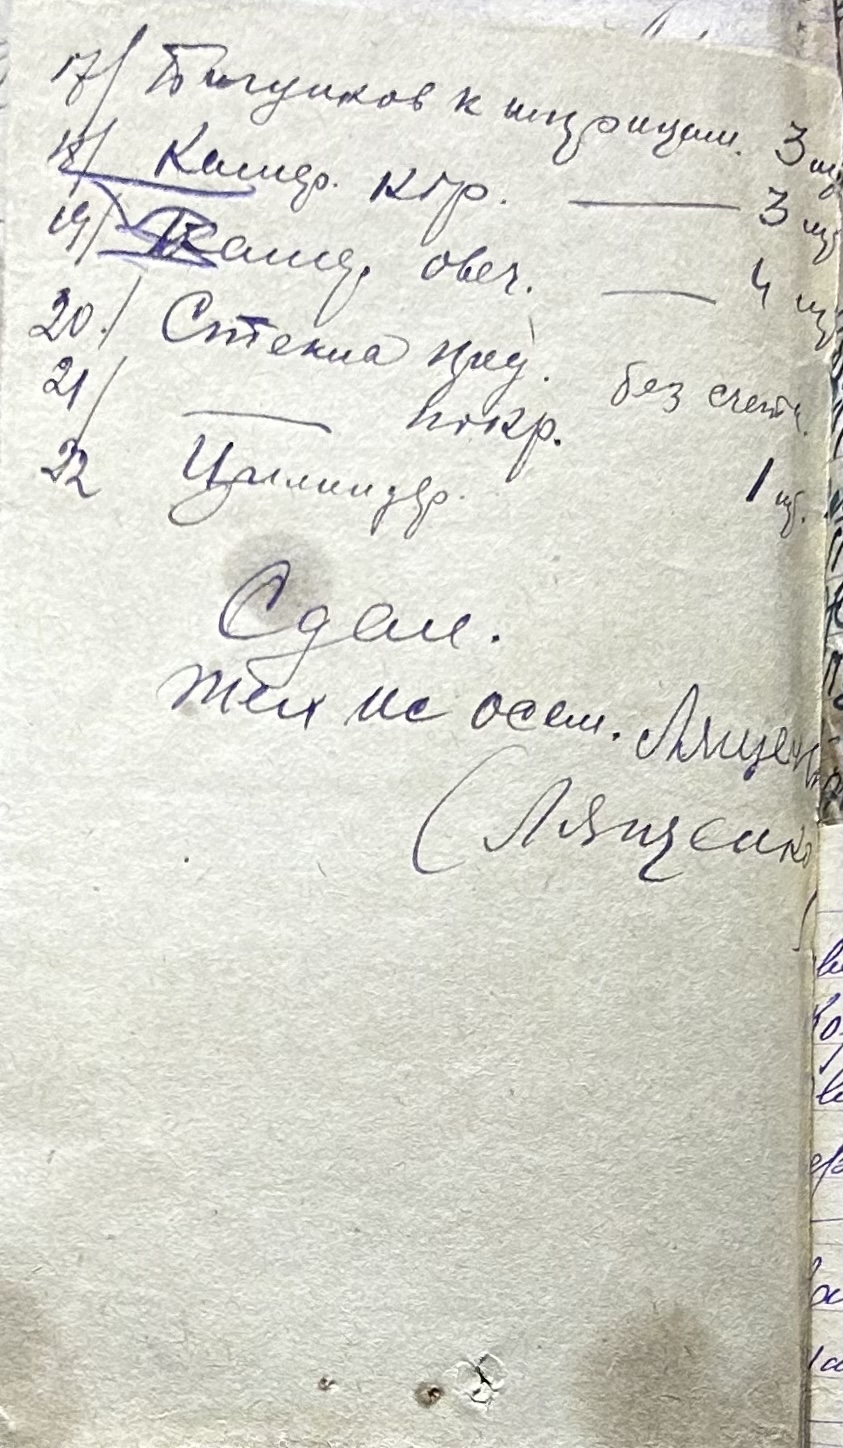 17/ Бегунков к шприцам. 3 шт
18/ Камер. кгр. — 3 шт
19/ Камер. овеч. — 4 шт
20/ Стекла пред. без счета.
21/ — покр.
22 Цилиндр. 1 шт.
Сдал.
тех ис осем. Лященко
(Лященко